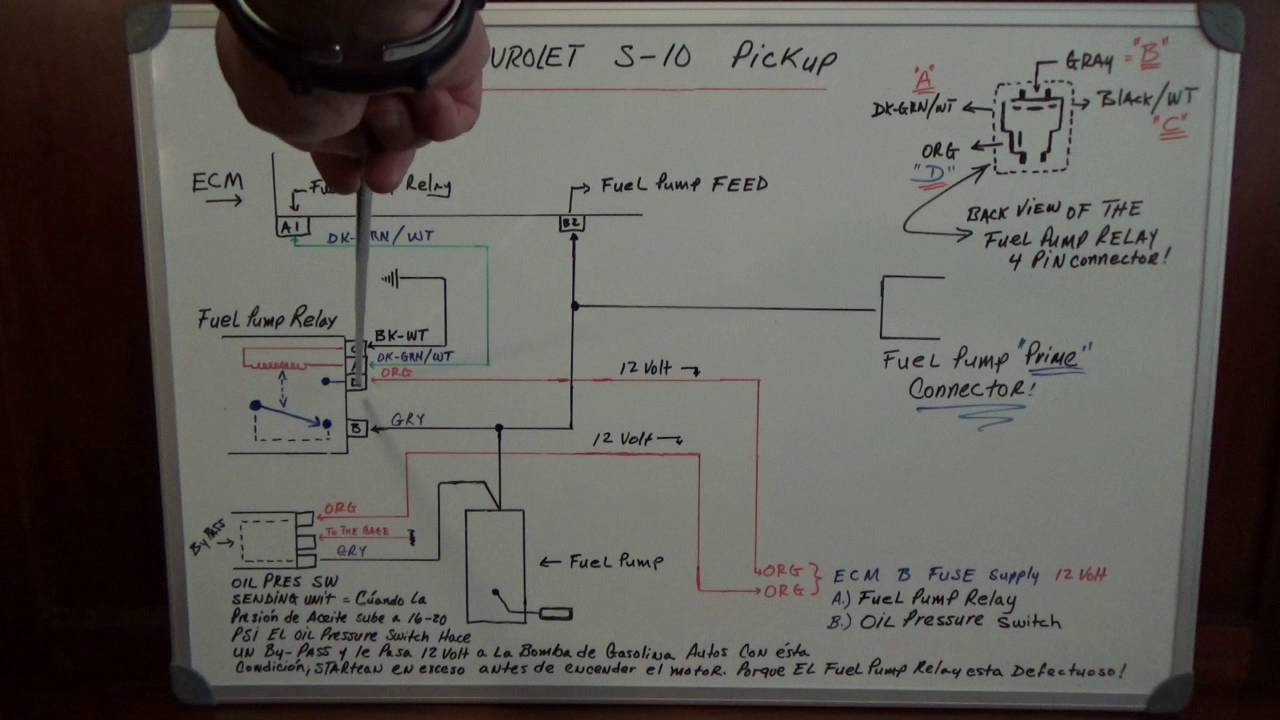 UROLET S-10 Pickup
GRAY = "B"
"A"
DK-GRN/WT
Black/WT
"C"
ORG
"D"
BACK VIEW OF THE
Fuel Pump RELAY
4 PIN connector!
ECM
Relay
Fuel Pump FEED
A1
B2
DK-GRN/WT
Fuel Pump Relay
BK-WT
DK-GRN/WT
ORG
12 Volt
B
GRY
12 Volt
Fuel Pump "Prime"
Connector!
ORG
TO THE GAGE
GRY
By PASS
Fuel Pump
ORG
ORG
ECM B FUSE Supply 12 Volt
A.) Fuel Pump Relay
B.) Oil Pressure Switch
OIL PRES SW
SENDING UNIT = Cúando La
Presión de Aceite sube a 16-20
PSI El Oil Pressure Switch Hace
UN By-PASS y le Pasa 12 Volt a La Bomba de Gasolina Autos Con ésta
Condición, STARTean en exceso antes de encender el motor. Porque EL Fuel Pump Relay esta Defectuoso!